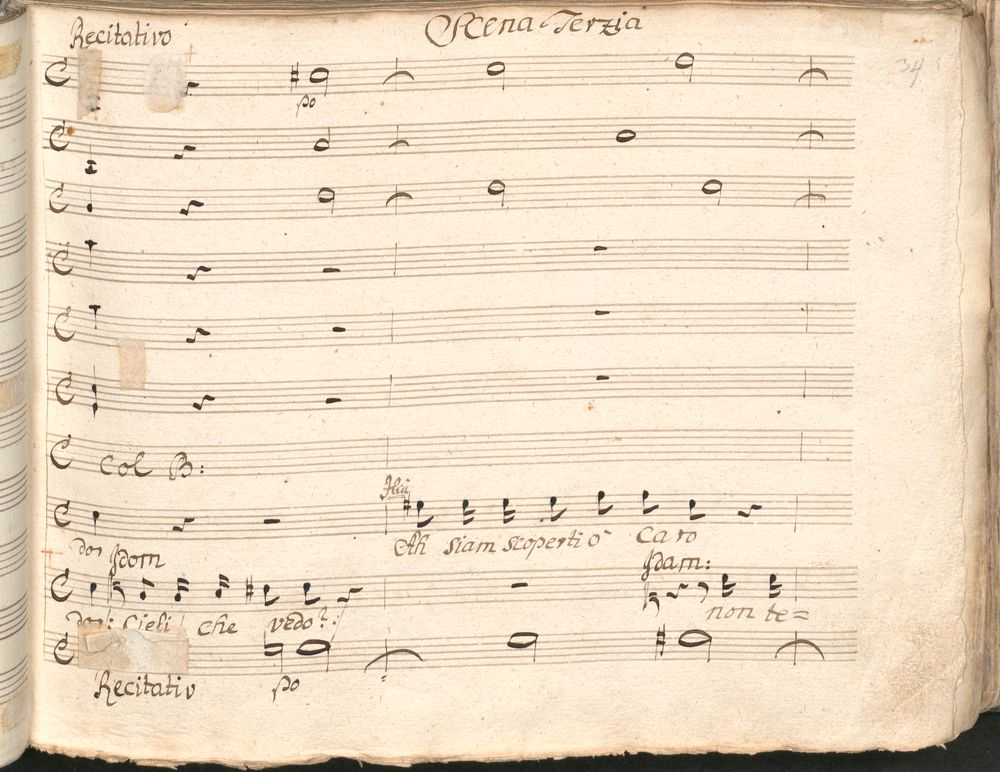 Recitativo Scena Terzia
34
po
Col B:
Ah siam scoperti ò Caro
dor Idom Idam:
dor: Cieli che vedo?: non te=
Recitativ po